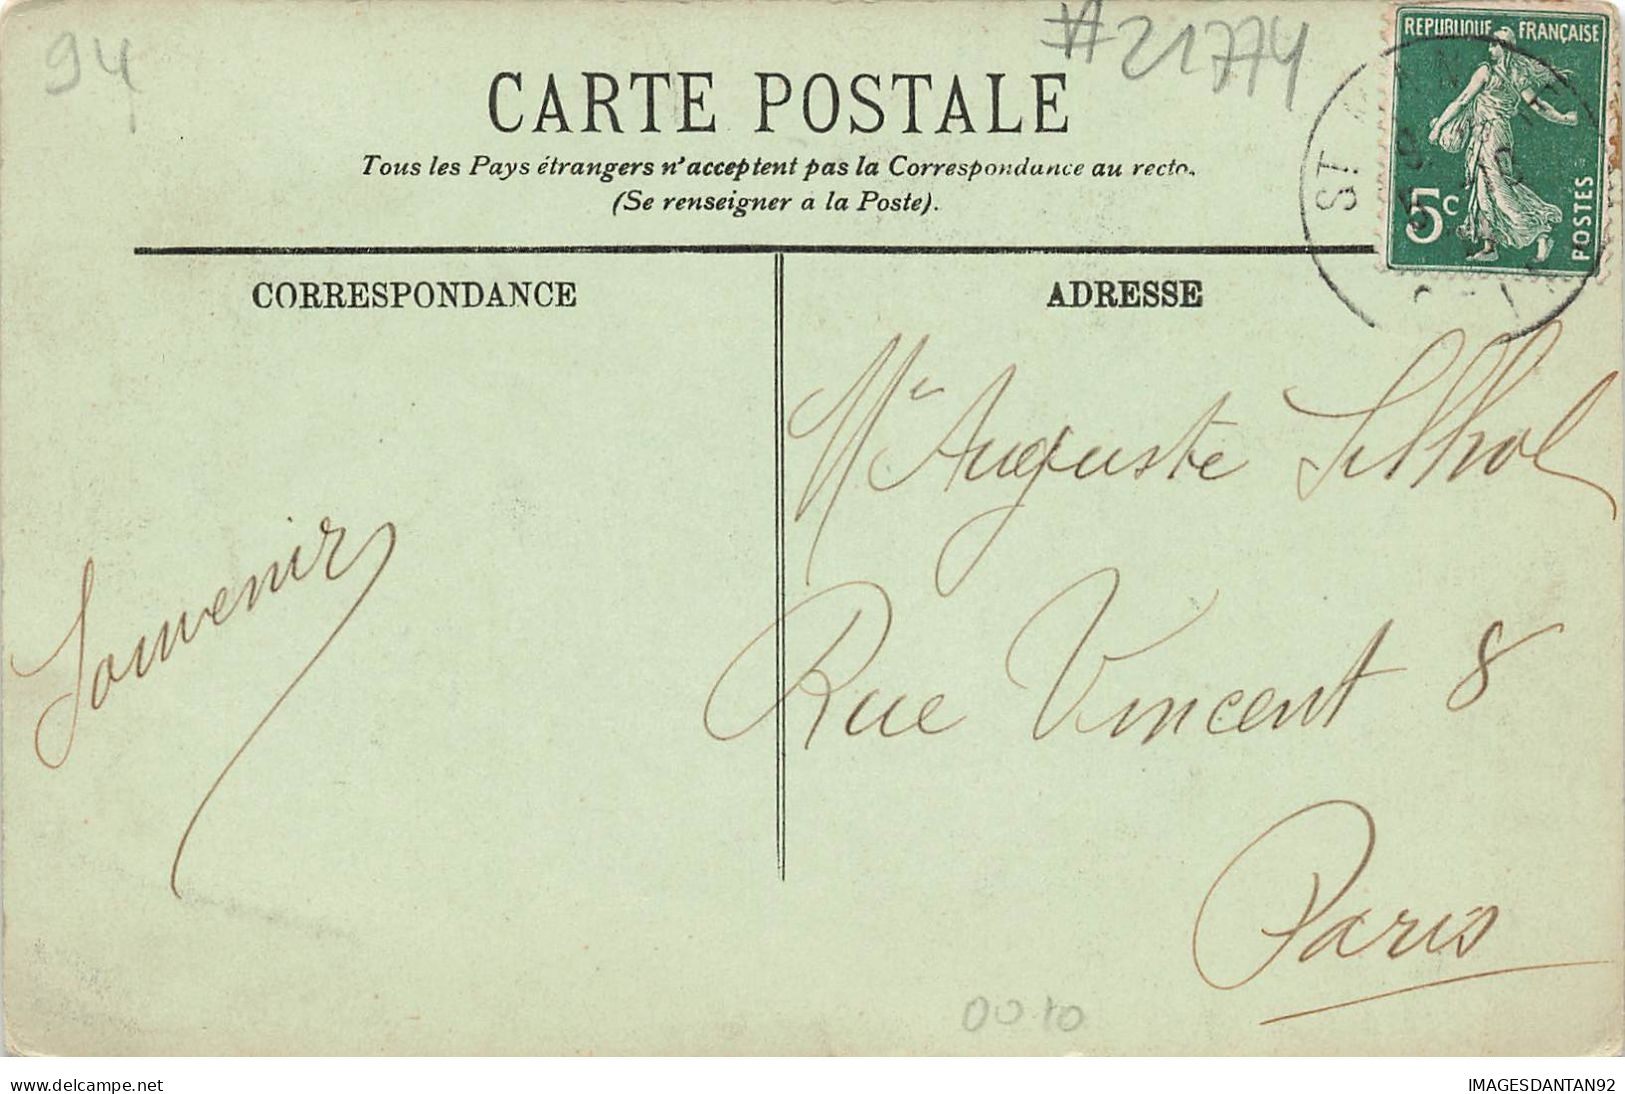 94
#21774
REPUBLIQUE FRANÇAISE
5c
POSTES
CARTE POSTALE
Tous les Pays étrangers n'acceptent pas la Correspondance au recto.
(Se renseigner a la Poste).
CORRESPONDANCE
ADRESSE
Souvenir
Mr Auguste Silhol
Rue Vincent 8
Paris
0010
www.delcampe.net
IMAGESDANTAN92